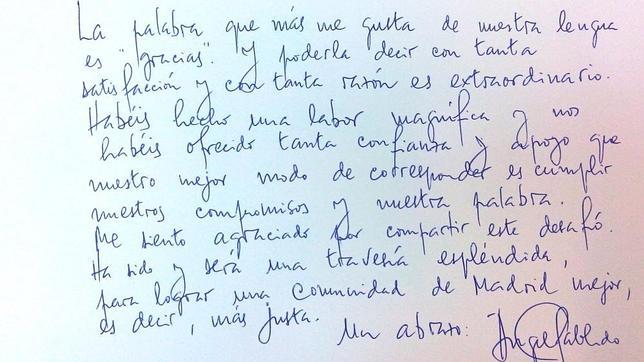 La palabra que más me gusta de nuestra lengua
es "gracias". Y poderla decir con tanta
satisfacción y con tanta razón es extraordinario.
Habéis hecho una labor magnífica y nos
habéis ofrecido tanta confianza y apoyo que
nuestro mejor modo de corresponder es cumplir
nuestros compromisos y nuestra palabra.
Me siento agraciado por compartir este desafío.
Ha sido y será una travesía espléndida,
para lograr una Comunidad de Madrid mejor,
es decir, más justa. Un abrazo: Ángel Gabilondo